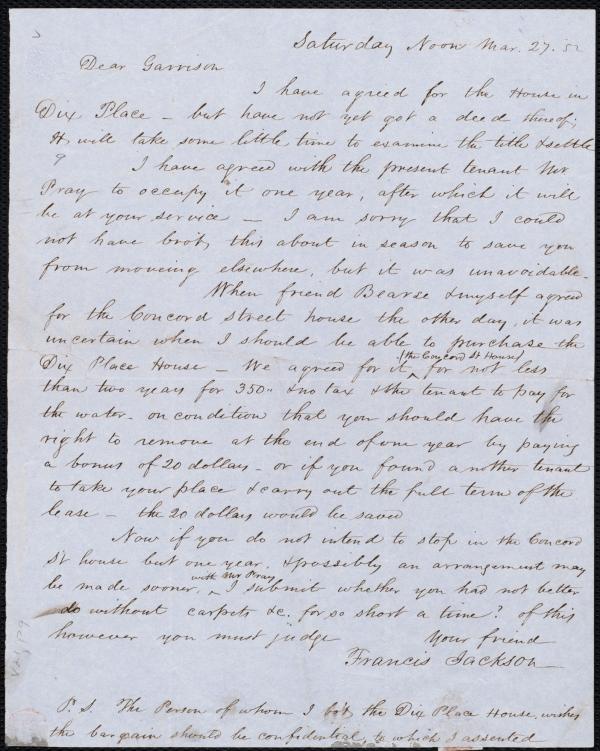 Saturday Noon Mar. 27. 52
Dear Garrison
I have agreed for the House in
Dix Place – but have not yet got a deed thereof;
It will take some little time to examine the title & settle
I have agreed with the present tenant Mr
Pray to occupy it one year, after which it will
be at your service – I am sorry that I could
not have bro't this about in season to save you
from moveing elsewhere, but it was unavoidable –
When friend Bearse & myself agreed
for the Concord street house the other day, it was
uncertain when I should be able to purchase the
Dix Place House – We agreed for it, (the Concord St House) for not less
than two years for 350.. & no tax & the tenant to pay for
the water – on condition that you should have the
right to remove at the end of one year by paying
a bonus of 20 dollars – or if you found another tenant
to take your place & carry out the full term of the
lease – the 20 dollars would be saved
Now if you do not intend to stop in the Concord
St house but one year, & possibly an arrangement may
be made sooner, with Mr Pray I submit whether you had not better
do without carpets &c. for so short a time? of this
however you must judge Your friend
Francis Jackson
P.S. The Person of whom I bo't the Dix Place House, wishes
the bargain should be confidential, to which I assented